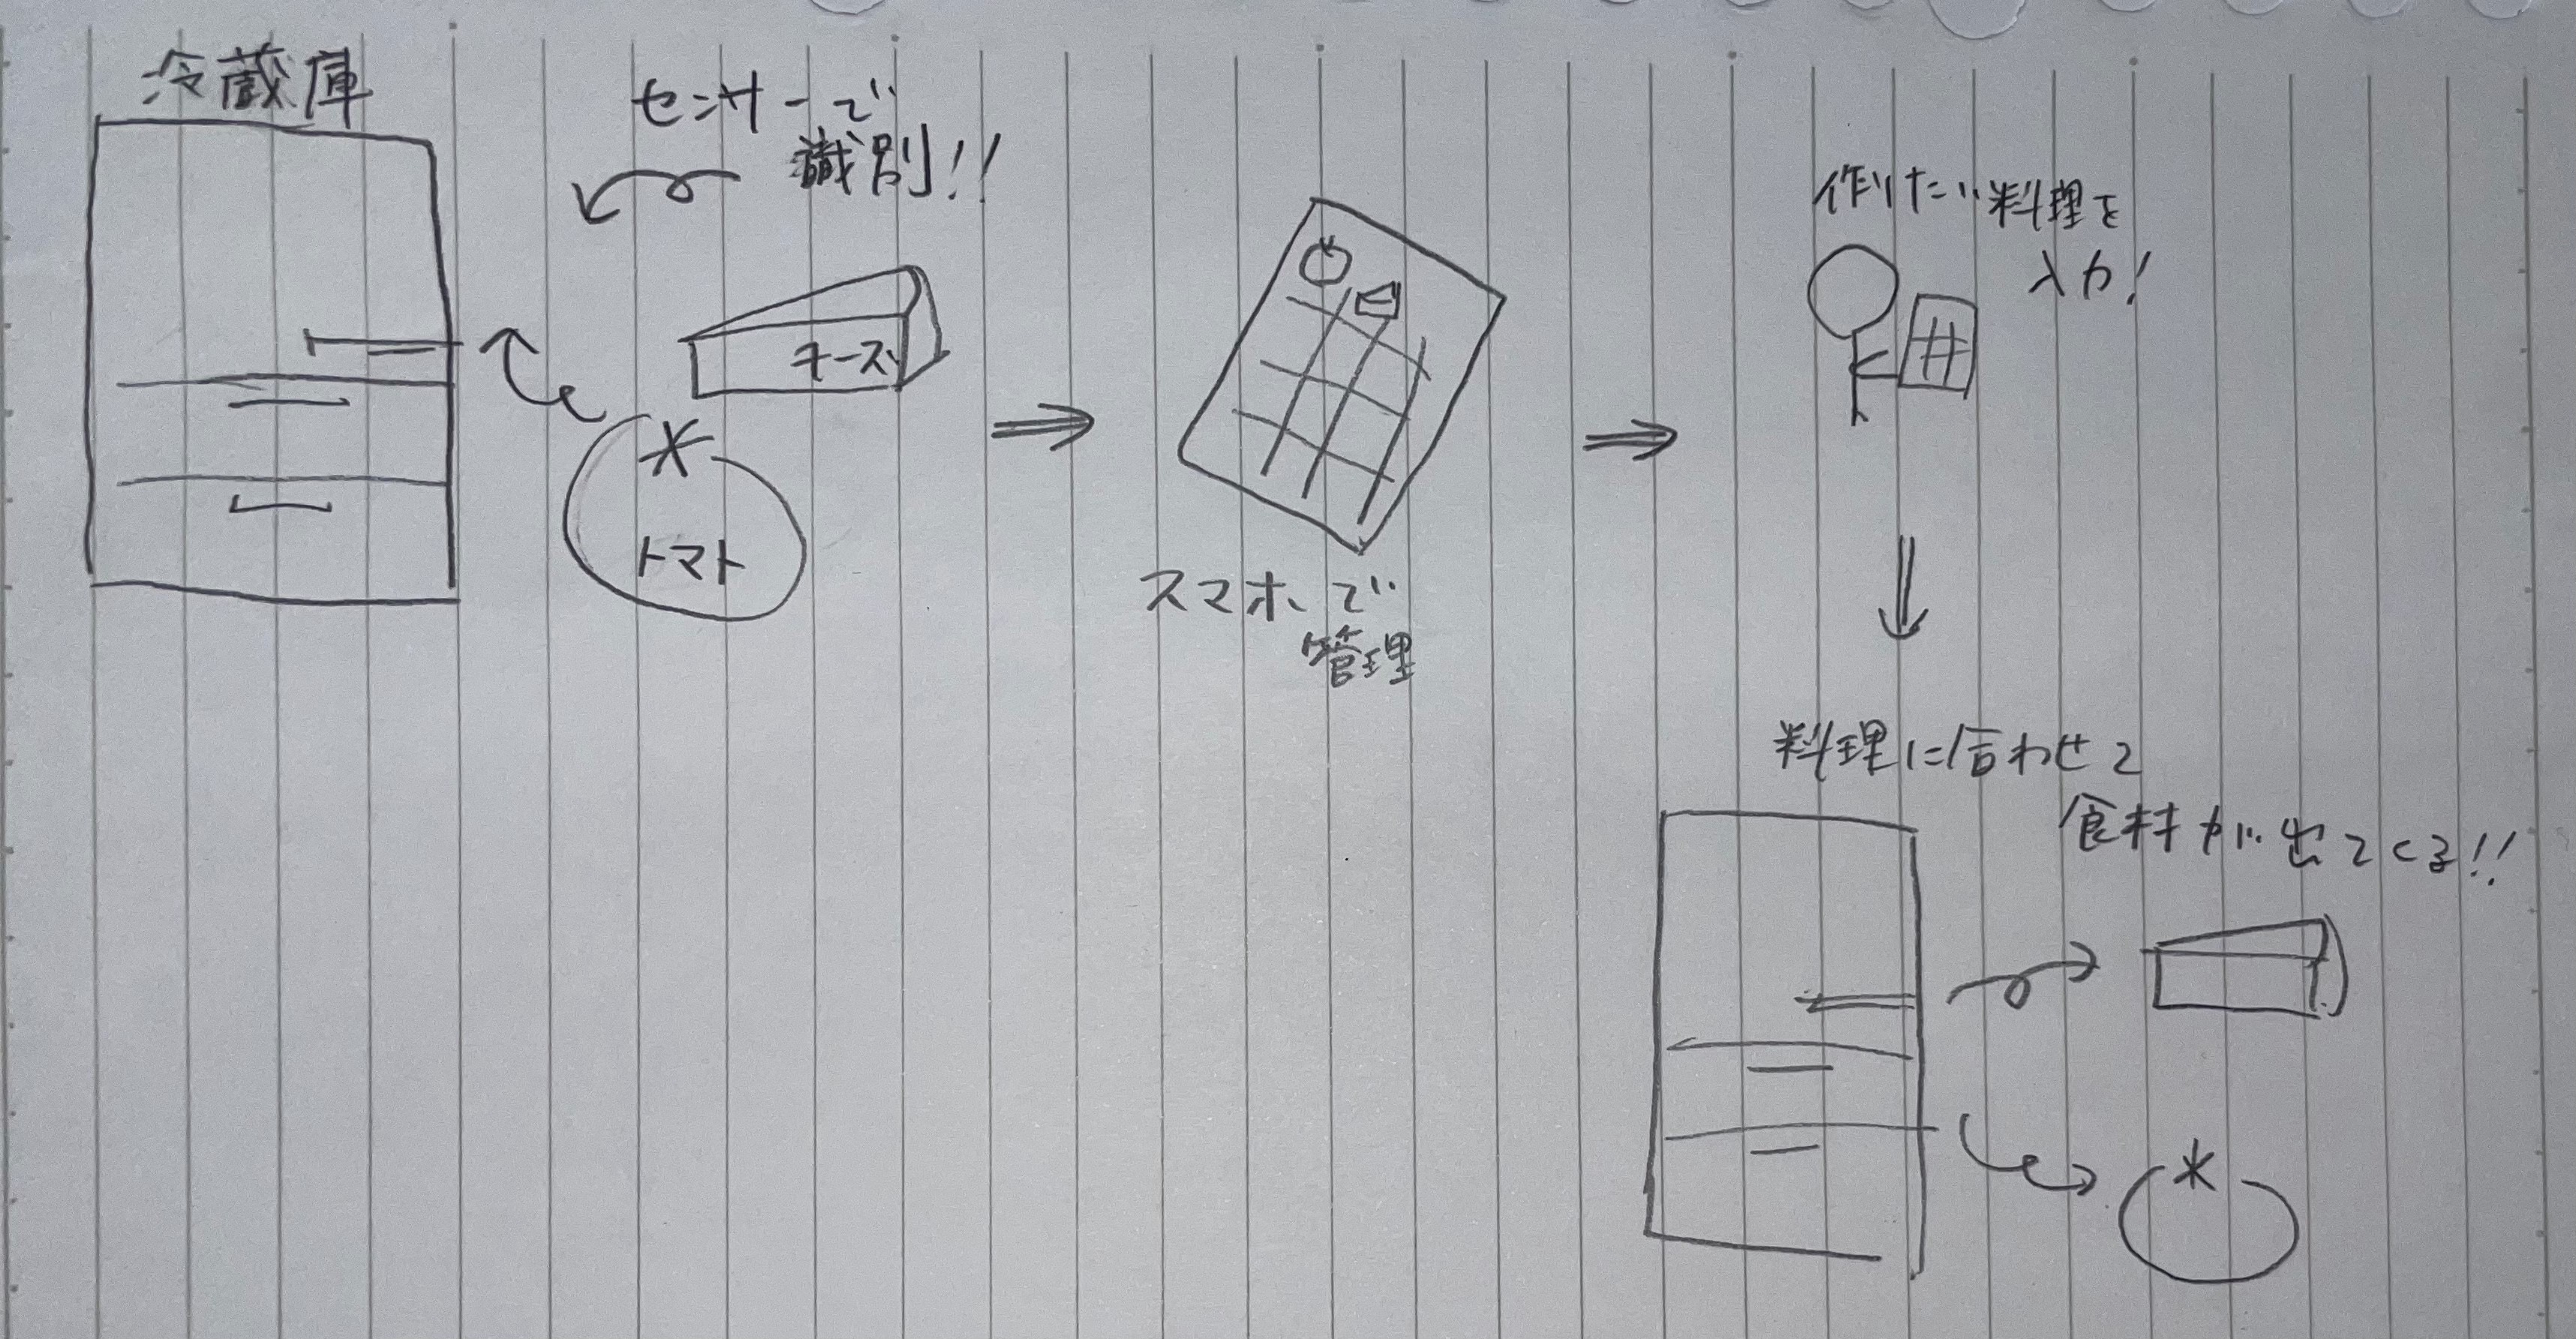 冷蔵庫
センサーで
識別!!
チーズ
トマト
スマホで
管理
作りたい料理を
入力!
料理に合わせて
食材が出てくる!!